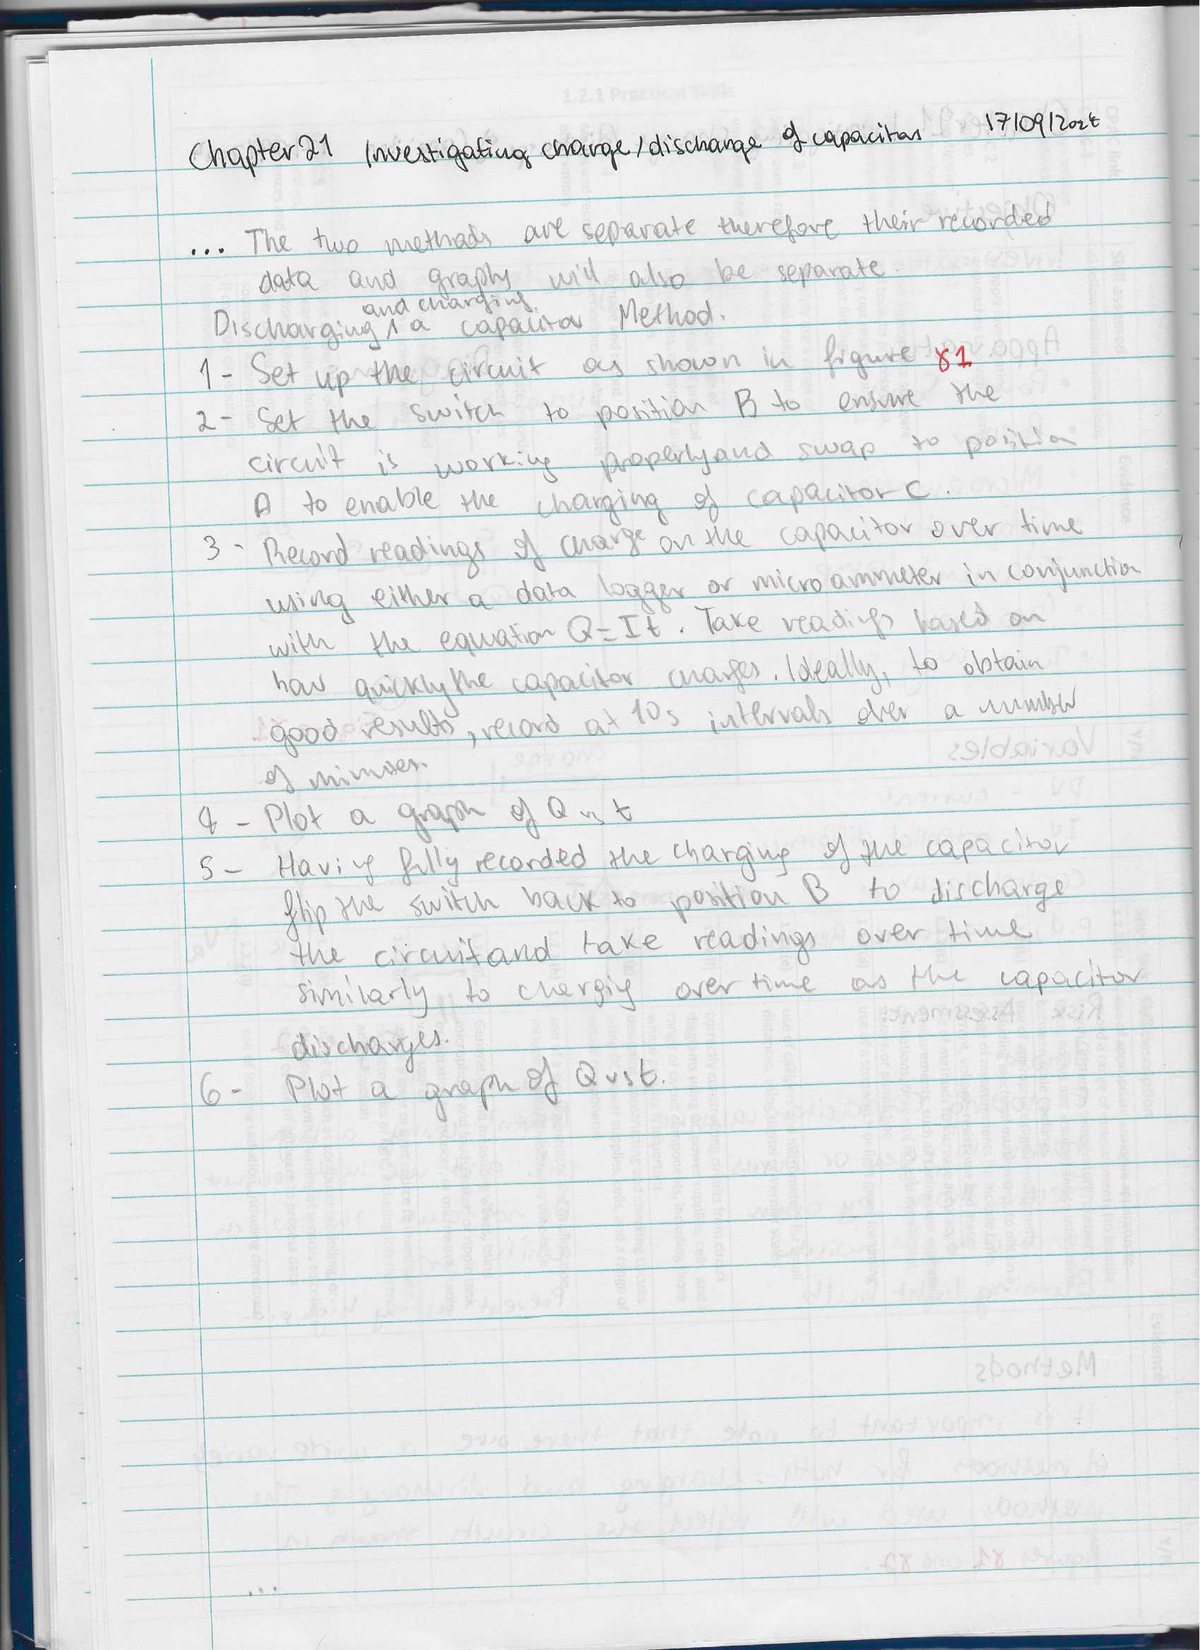 Chapter 21 Investigating charge/discharge of capacitas 17/09/2024
... The two methods are separate therefore their recorded
data and graphs will also be separate.
and charging
Discharging ^ a capacitor Method.
1- Set up the circuit as shown in figure 81
2- Set the switch to position B to ensure the
circuit is working properly and swap to position
A to enable the charging of capacitor C.
3- Record readings of charge on the capacitor over time
using either a data logger or microammeter in conjunction
with the equation Q=It. Take readings based on
how quickly the capacitor charges. Ideally, to obtain
good results, record at 10s intervals over a number
of minutes.
4- Plot a graph of Q vs t
5- Having fully recorded the charging of the capacitor
flip the switch back to position B to discharge
the circuit and take readings over time
similarly to charging over time as the capacitor
discharges.
6- Plot a graph of Q vs t.
...